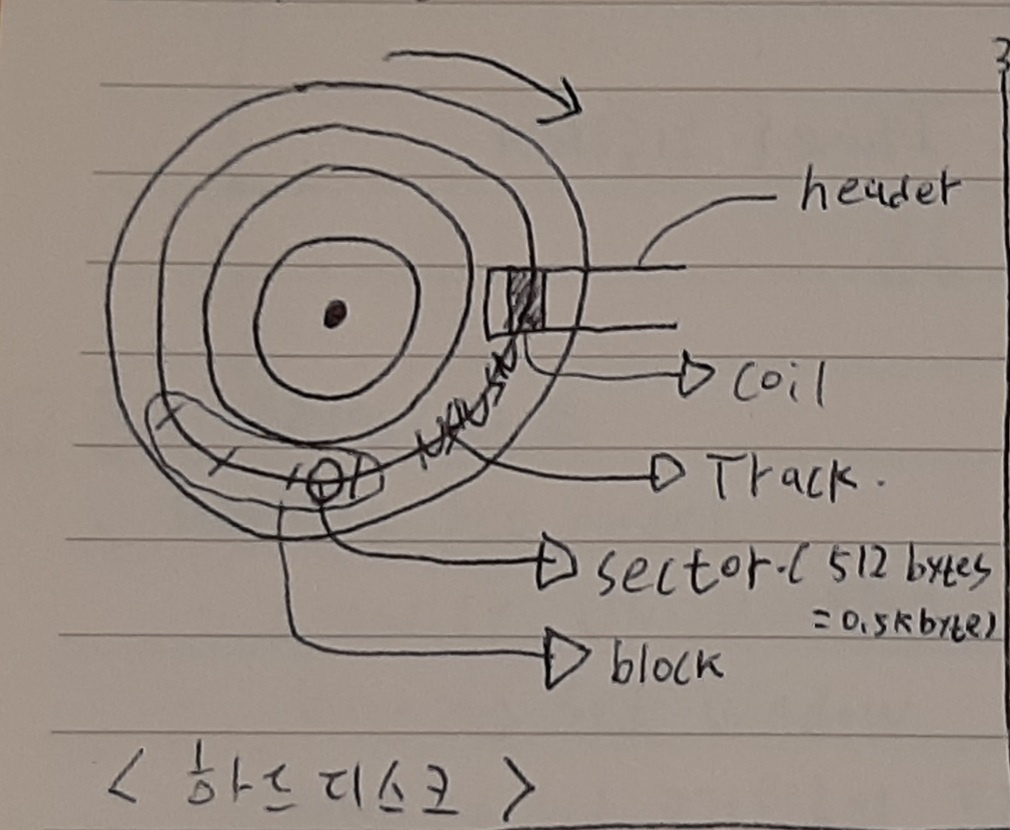 header
coil
Track.
sector.( 512 bytes
= 0.5k byte)
block
< 하드디스크 >